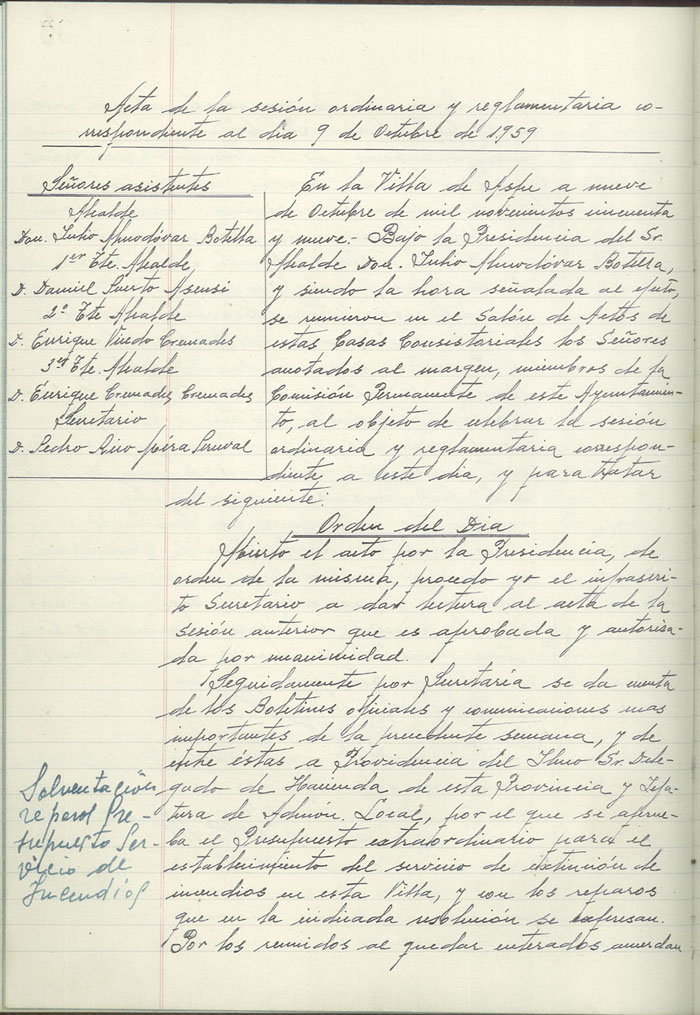 Acta de la sesión ordinaria y reglamentaria co-
rrespondiente al dia 9 de Octubre de 1959
Señores asistentes
Alcalde
Don. Julio Almodóvar Botella
1er Tte. Alcalde,
D. Daniel Puerto Asensi
2º Tte Alcalde
D. Enrique Cremades
3er Tte. Alcalde
D. Enrique Cremades Cremades
Secretario
D. Pedro
En la Villa de Aspe a nueve
de Octubre de mil novecientos cincuenta
y nueve.- Bajo la Presidencia del Sr.
Alcalde Don. Julio Almodóvar Botella,
y siendo la hora señalada al efecto,
se reunieron en el Salón de Actos de
estas Casas Consistoriales los Señores
anotados al margen, miembros de la
Comisión Permanente de este Ayuntamien-
to, al objeto de celebrar la sesión
ordinaria y reglamentaria correspon-
diente a este dia, y para tratar
del siguiente:
Orden del Dia
Abierto el acto por la Presidencia, de
orden de la misma, procedo yo el infrascri-
to Secretario a dar lectura al acta de la
sesión anterior que es aprobada y autoriza-
da por unanimidad.
Seguidamente por Secretaría se da cuenta
de los Boletines oficiales y comunicaciones mas
importantes de la precedente semana, y de
entre éstas a Providencia del Ilmo Sr. Dele-
gado de Hacienda de esta Provincia y Jefa-
tura de Admón. Local, por el que se aprue-
ba el Presupuesto extraordinario para el
establecimiento del servicio de extinción de
incendios en esta Villa, y con los reparos
que en la indicada resolución se expresan.
Por los reunidos al quedar enterados acuerdan
Solventación
reparos Pre-
supuesto Ser-
vicio de
Incendios